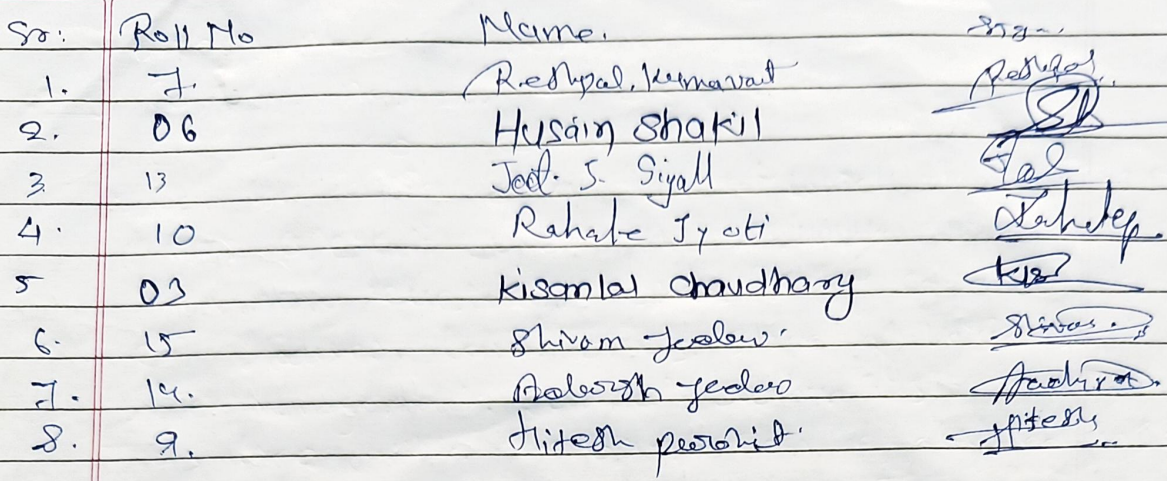 Sr: Roll No Name. Sig-.
1. 7. Reshpal. Kumavat Reshpal
2. 06 Husain Shakil
3. 13 Jeet. S. Siyall
4. 10 Rahate Jyoti
5 03 Kisanlal Chaudhary
6. 15 Shivam Yadav.
7. 14. Adarsh Yadav
8. 9. Hitesh Purohit. Hitesh